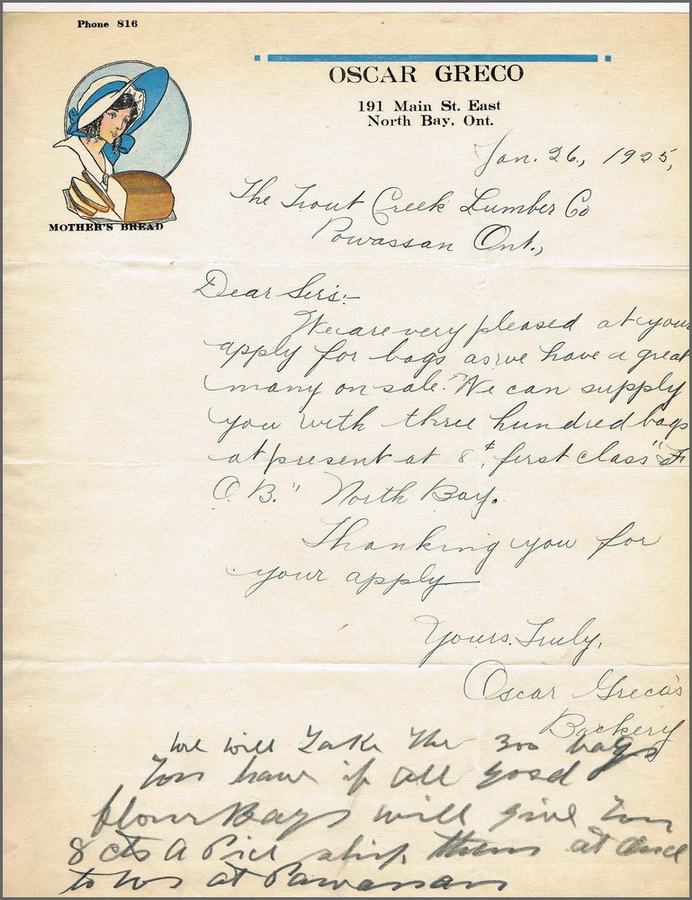 Phone 816
OSCAR GRECO
191 Main St. East
North Bay, Ont.
MOTHER'S BREAD
Jan. 26, 1925,
The Trout Creek Lumber Co
Powassan Ont.,
Dear Sirs:-
We are very pleased at your
apply for bags as we have a great
many on sale. We can supply
you with three hundred bags
at present at 8¢, first class "F.
O.B." North Bay.
Thanking you for
your apply
Yours Truly,
Oscar Greco's
Backery
We will Take the 300 bags
You have if all good
flour Bags will give You
8 cts A Pice ship them at once
to Us at Pawassan